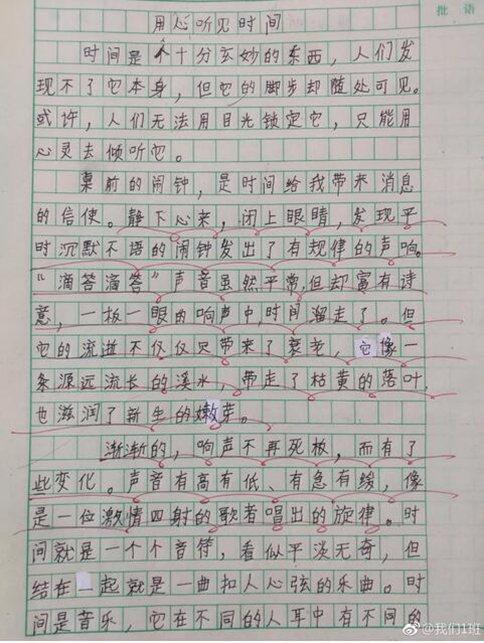 批语
用心听见时间
时间是个十分玄妙的东西，人们发
现不了它本身，但它的脚步却随处可见。
或许，人们无法用目光锁定它，只能用
心灵去倾听它。
桌前的闹钟，是时间给我带来消息
的信使。静下心来，闭上眼睛，发现平
时沉默不语的闹钟发出了有规律的声响。
“滴答滴答”声音虽然平常，但却富有诗
意，一板一眼的响声中，时间溜走了。但
它的流逝不仅仅只带来了衰老，它像一
条源远流长的溪水，带走了枯黄的落叶，
也滋润了新生的嫩芽。
渐渐的，响声不再死板，而有了
些变化。声音有高有低、有急有缓，像
是一位激情四射的歌者唱出的旋律。时
间就是一个个音符，看似平淡无奇，但
结在一起就是一曲扣人心弦的乐曲。时
间是音乐，它在不同的人耳中有不同的
@我们1班